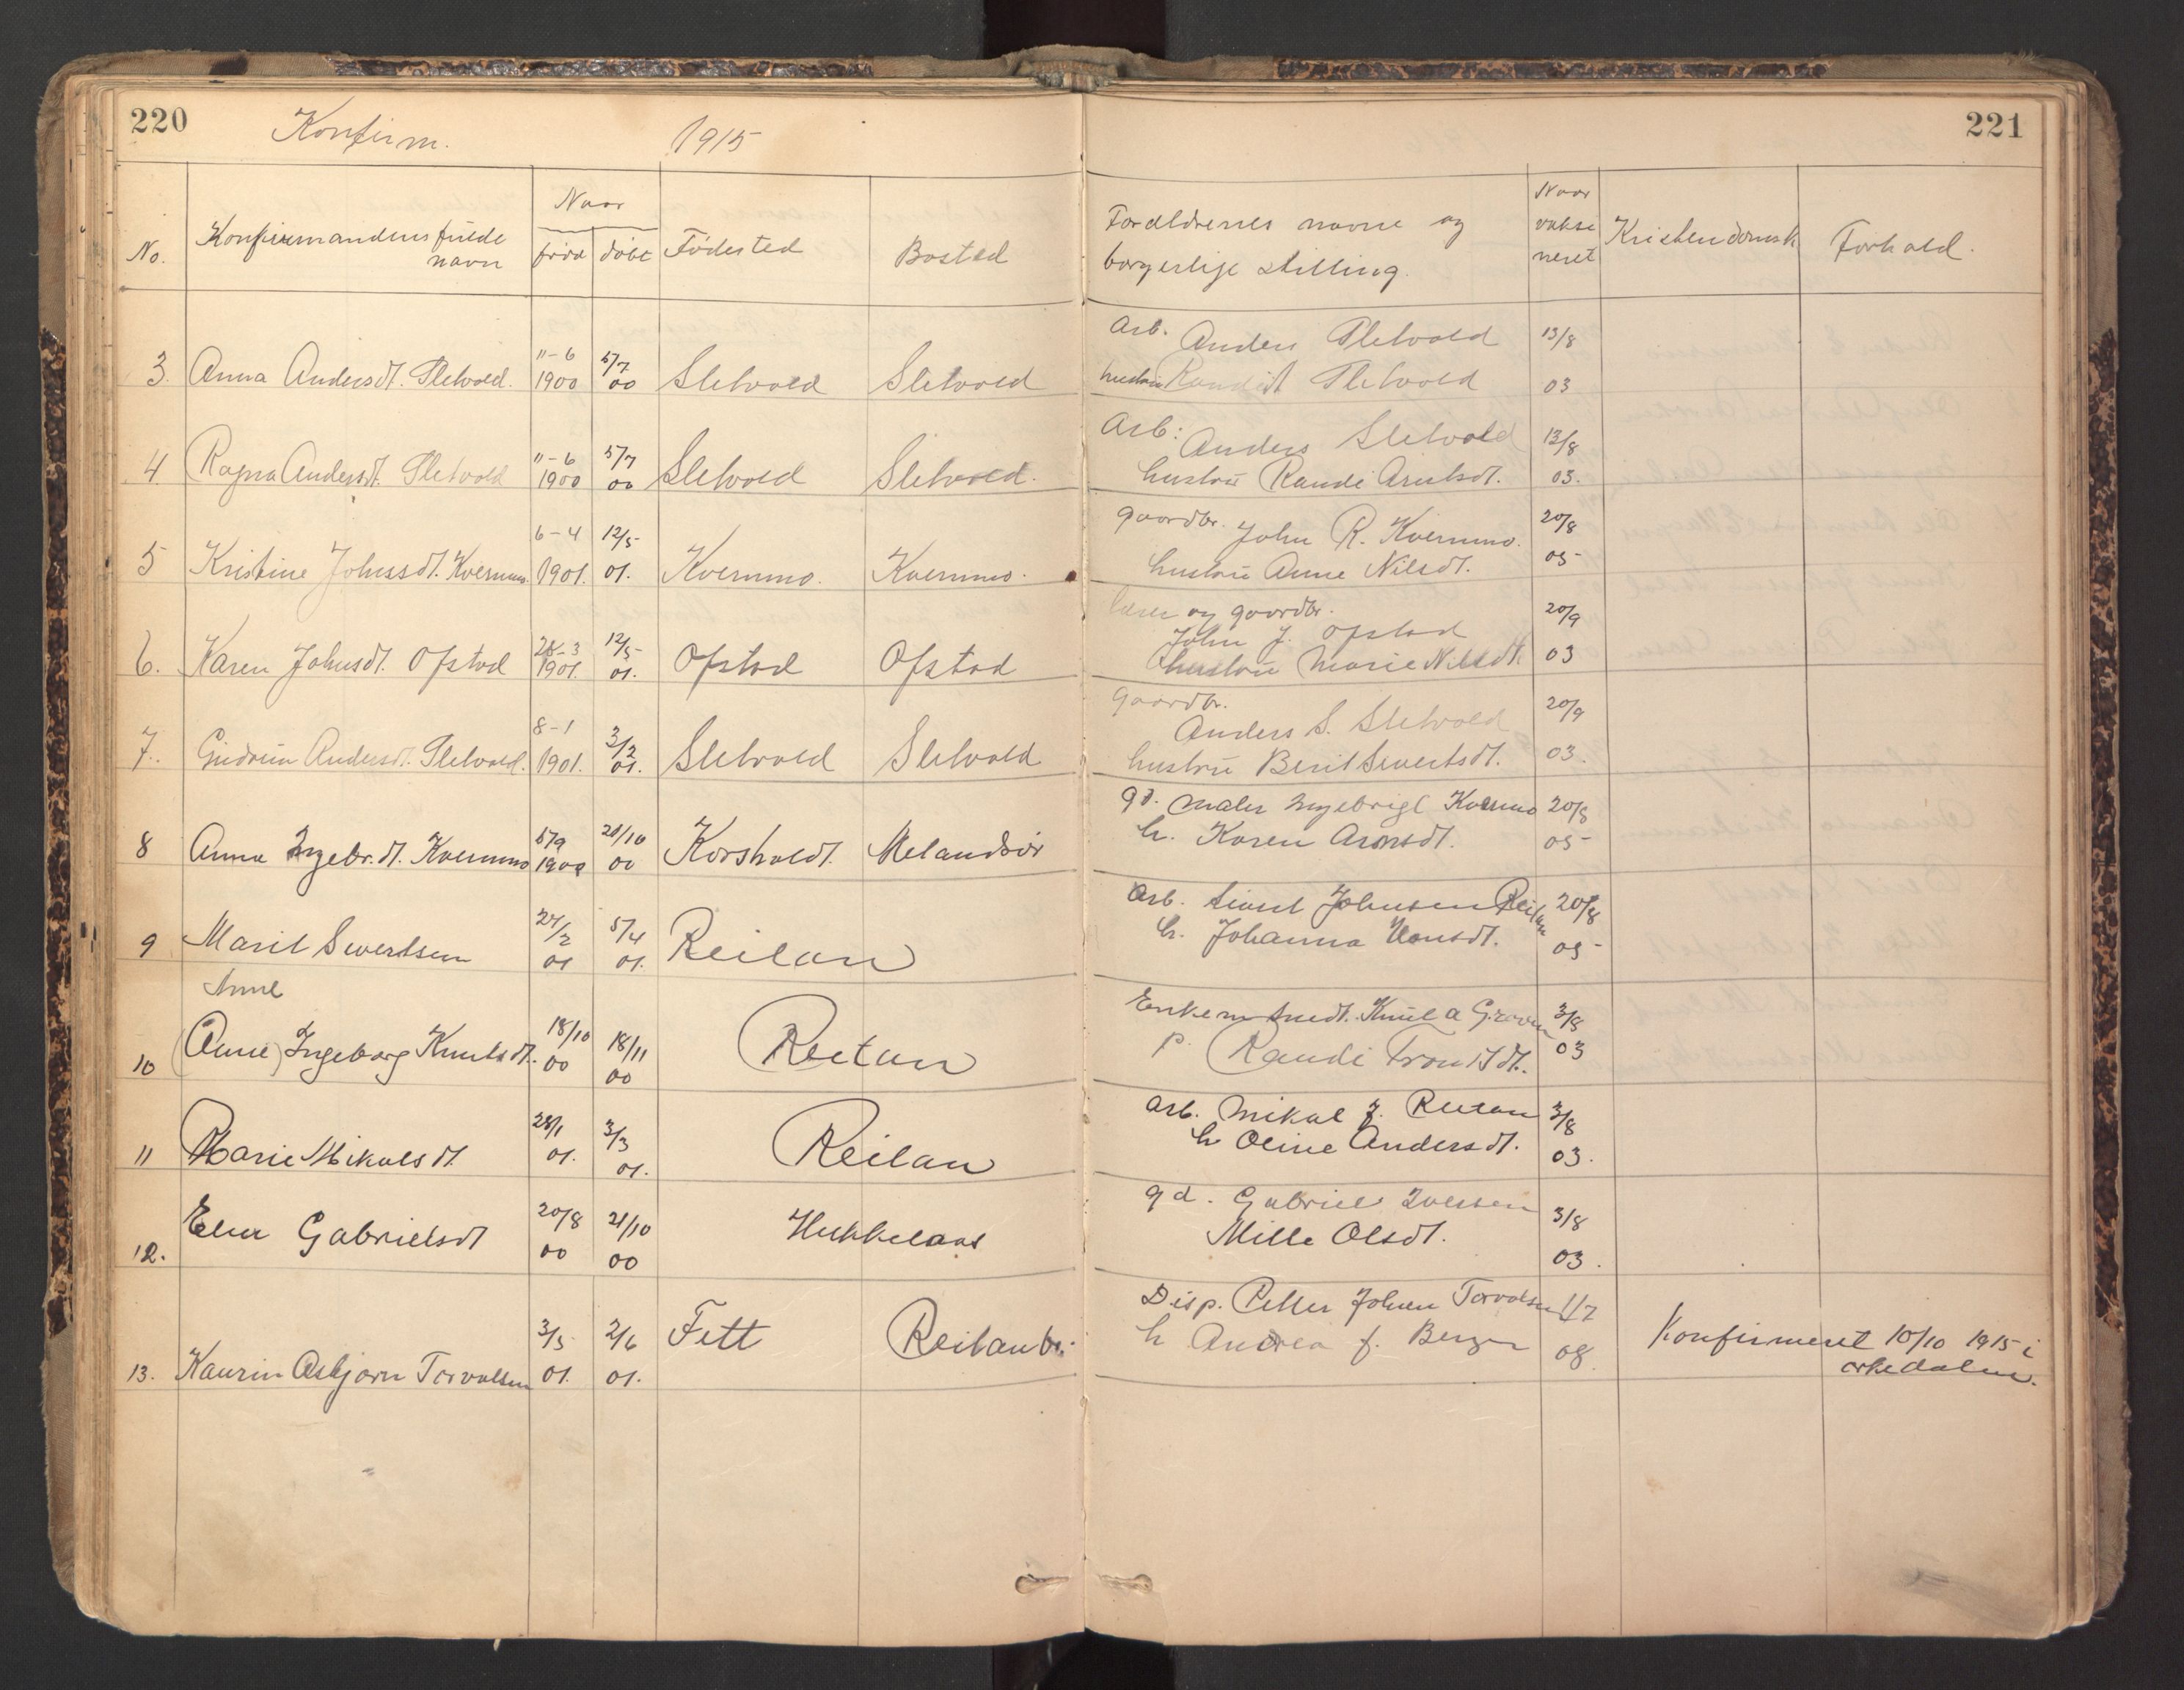 220
Konfirm. 1915
No. Konfirmandens fulde navn Naar født døbt Fødested Bosted
3. Anna Andersdt. Sletvold. 11-6 1900 5/7 00 Sletvold Sletvold
4. Ragna Andersdt. Sletvold 11-6 1900 5/7 00 Sletvold Sletvold.
5 Kristine Johnsdt. Kvernmo. 6-4 1901. 12/5 01. Kvernmo. Kvernmo.
6. Karen Johnsdt. Opstad 28-3 1901. 12/5 01. Opstad Opstad
7. Gudrun Andersdt. Sletvold. 8-1 1901. 3/3 01. Sletvold Sletvold
8 Anna Ingebr.dt. Kvernmo 5/9 1900 21/10 00 Korsholdt. Melandsør
9 Marit Sivertsen 24/2 01 5/4 01. Reitan
Anne
10 (Anne) Ingeborg Knutsdt. 18/10 00 18/11 00 Reitan
11 Marie Mikalsdt. 28/1 01. 3/3 01. Reitan
12. Elen Gabrielsdt 20/8 00 21/10 00
13. Kaurin Asbjørn Torvolsen 3/5 01. 2/6 01. Fett Reitanbr.
221
Forældrenes navne og
borgerlige stilling. Naar vaksineret Kristendomsk Forhold.
Arb. Anders Sletvold 13/8
hustru Sletvold 03
Arb: Anders Sletvold 13/8
hustru Randi Arntsdt. 03.
gaardbr. John R. Kvernmo. 20/8
hustru Anne Nilsdt. 05
lærer og gaardbr. 20/9
John J. Opstad
hustru Marie Nilsdt. 03
Gaardbr. 20/9
Anders S. Sletvold
hustru Berit Sivertsdt. 03.
gd. maler Ingebrigt Kvernmo 20/8
h. Karen Aronsdt. 05
Arb. Sivert Johnsen Reitan 20/8
h. Johanna Hansdt. 05
Enkem Knut a Graven 3/8
p. Randi Trondsdt. 03
Arb. Mikal J. Reitan 3/8
h Oline Andersdt. 03.
gd. Gabriel Iversen 3/8
Mille Olsdt. 03.
Disp. Petter Johan Torvolsen 1/7
h Andrea f. Berge 08. Konfirmeret 10/10 1915 i
orkedalen.